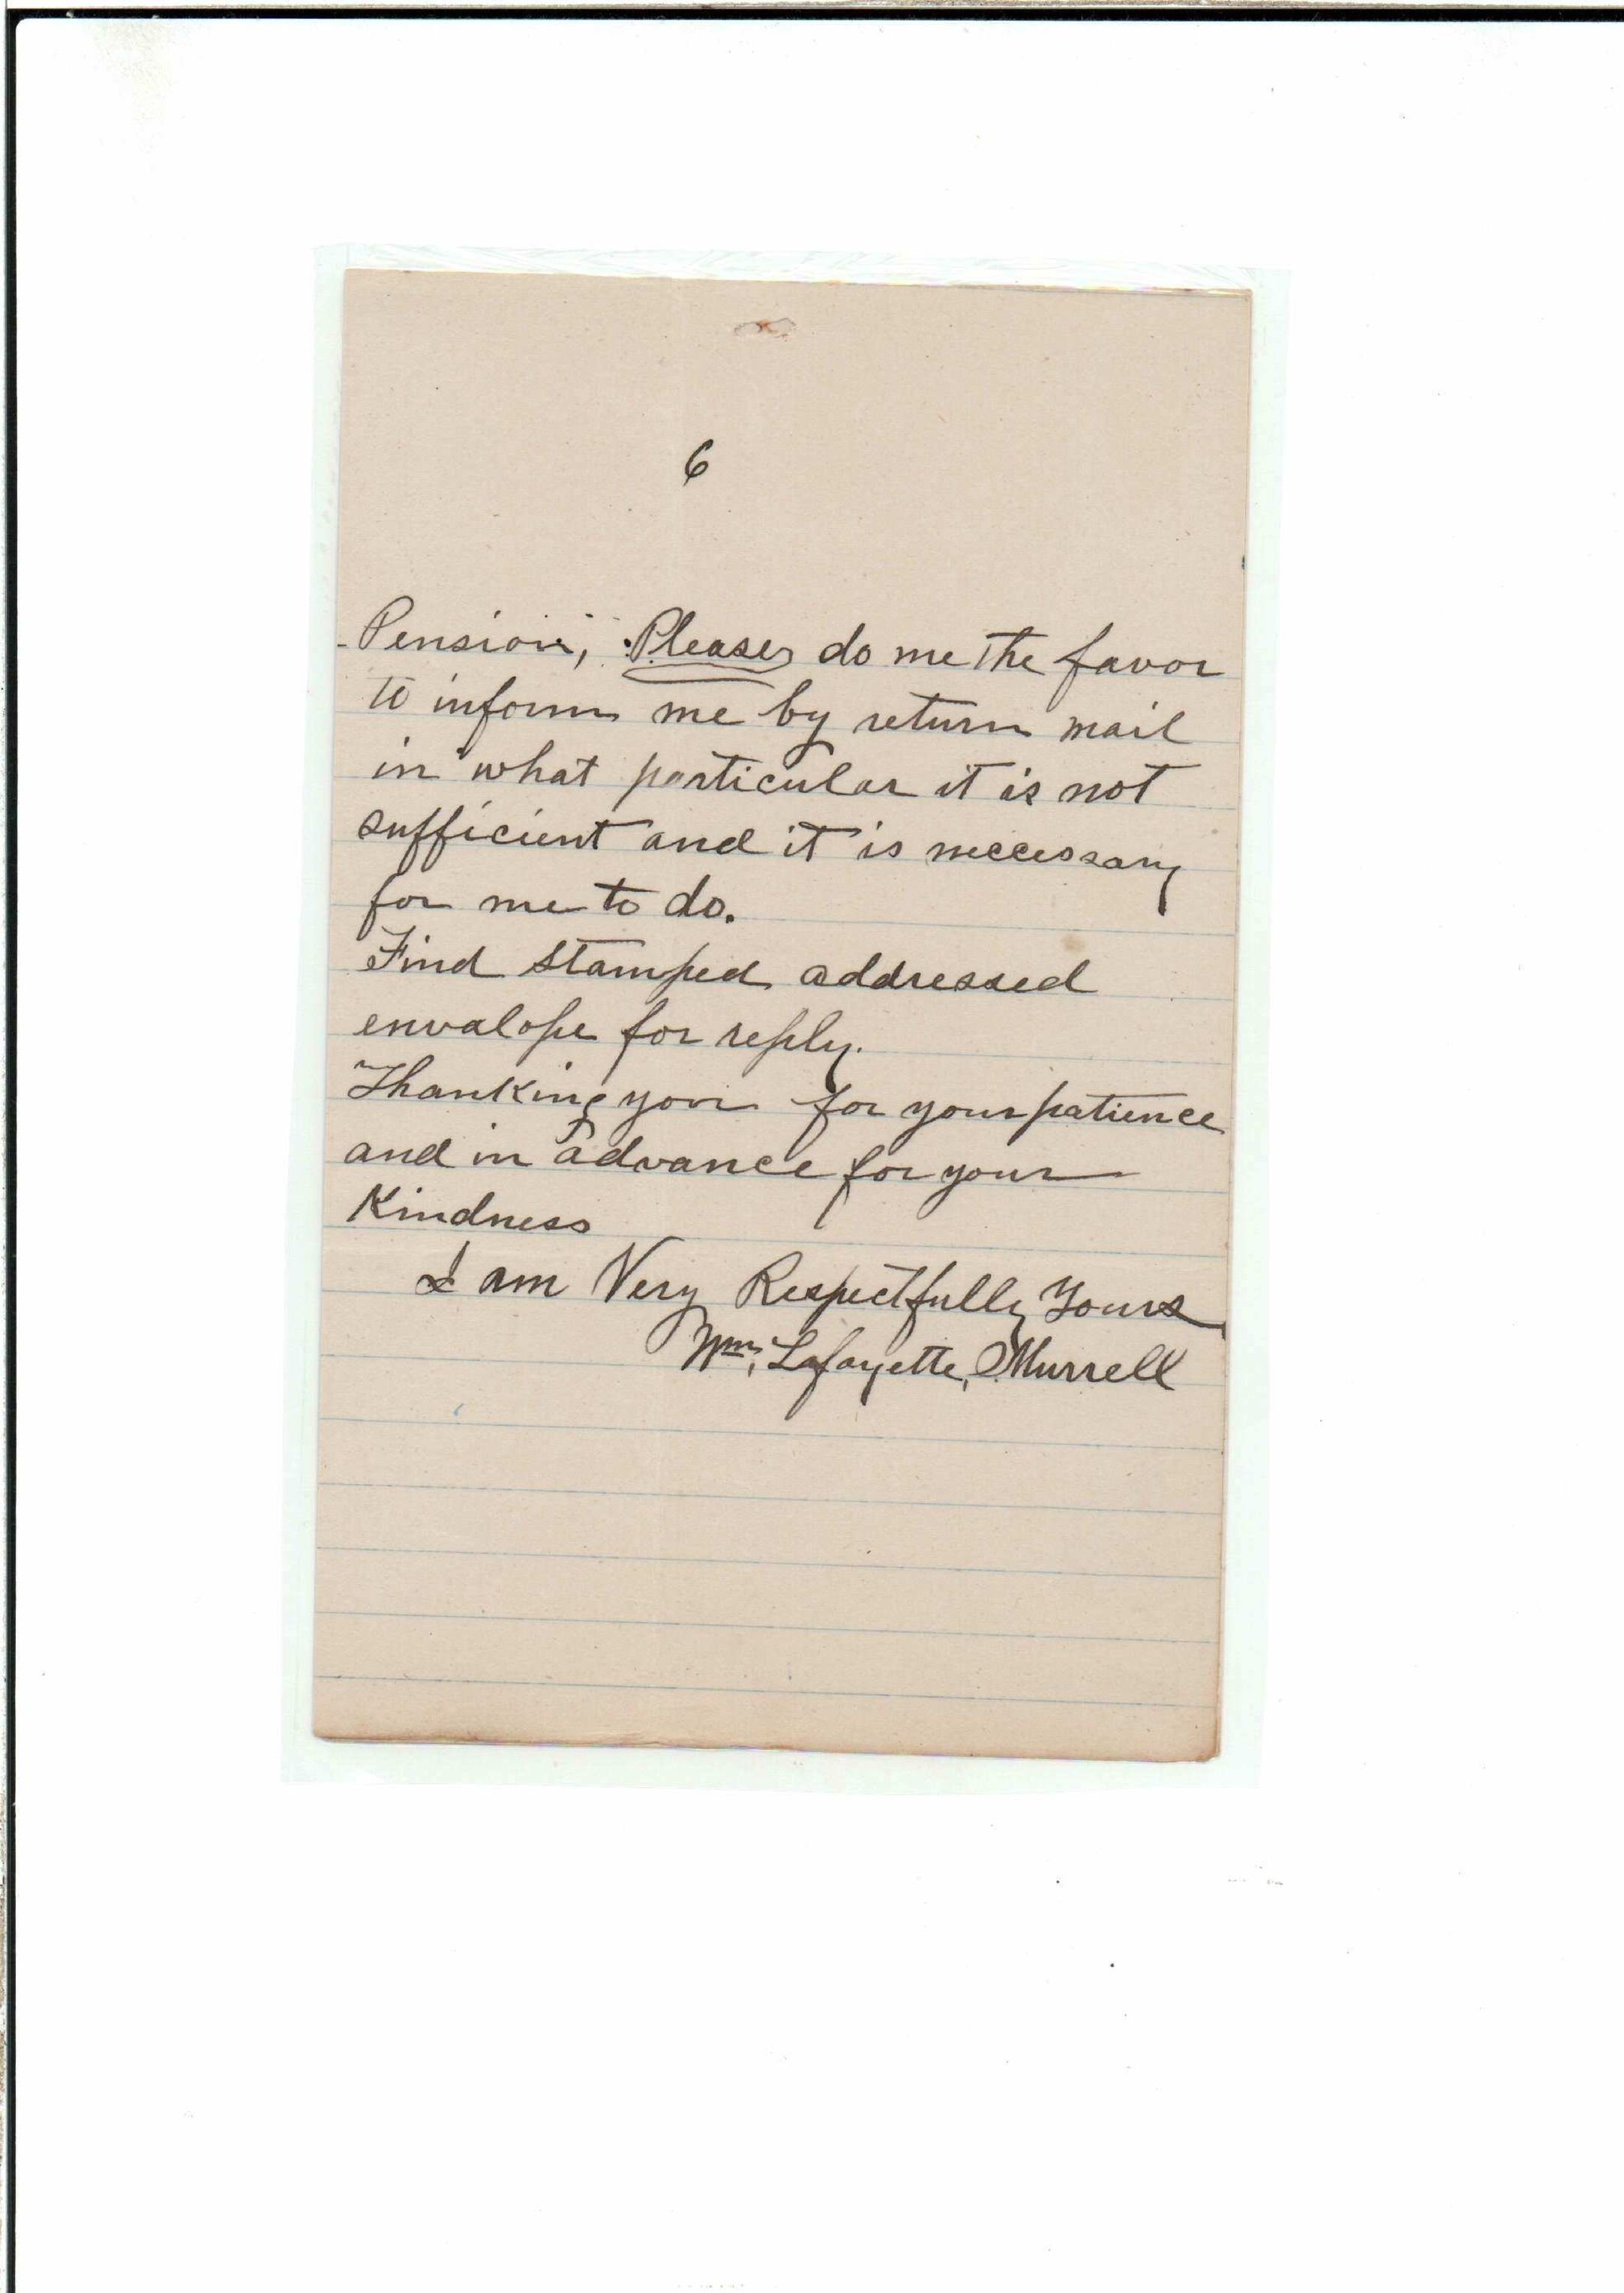 6
Pension, Please do me the favor
to inform me by return mail
in what particular it is not
sufficient and it is neccessary
for me to do.
Find stamped addressed
envalope for reply.
Thanking you for your patience
and in advance for your
Kindness
I am Very Respectfully Yours
Wm, Lafayette, Murrell